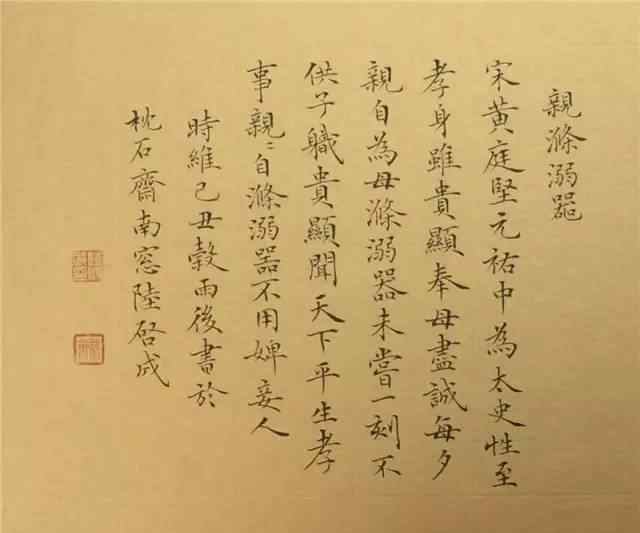 親滌溺器
宋黃庭堅元祐中為太史性至
孝身雖貴顯奉母盡誠每夕
親自為母滌溺器未嘗一刻不
供子職貴顯聞天下平生孝
事親〻自滌溺器不用婢妾人
時維己丑穀雨後書於
枕石齋南窓陸啓成